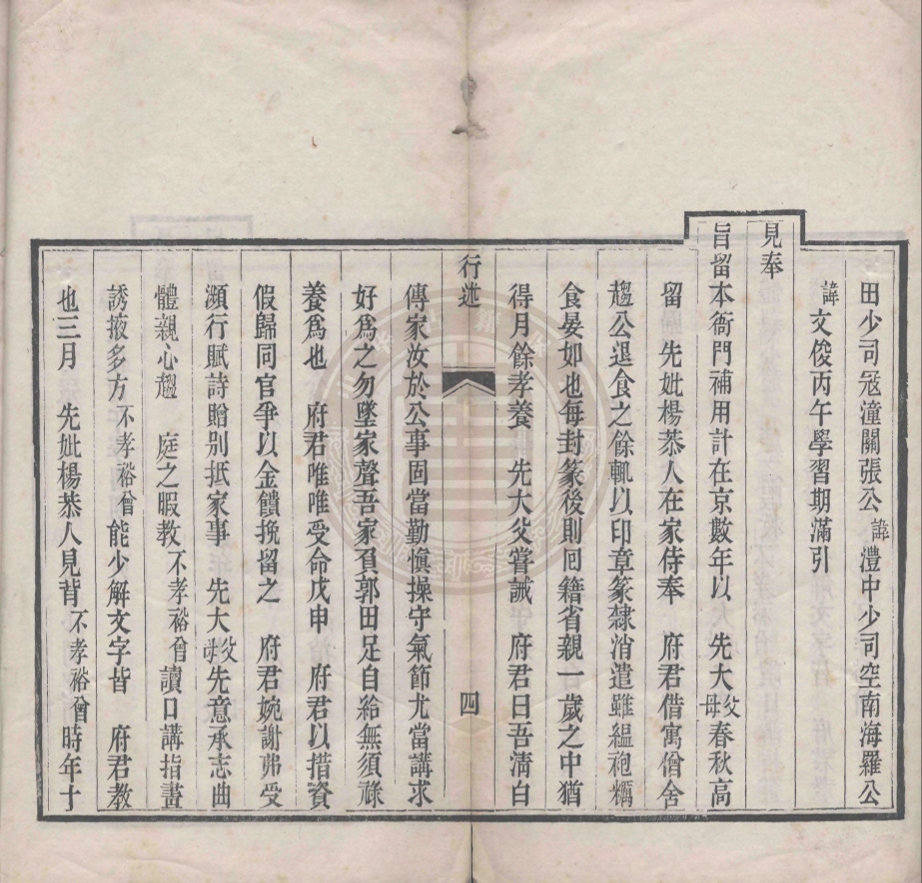 田少司寇潼關張公諱灃中少司空南海羅公
諱文俊丙午學習期滿引
見奉
旨留本衙門補用計在京數年以　先大父母春秋高
留　先妣楊恭人在家侍奉　府君借寓僧舍
趨公退食之餘輒以印章篆隸消遣雖緼袍糲
食晏如也每封篆後則囘籍省親一歲之中猶
得月餘孝養　先大父嘗誡　府君曰吾清白
行述
四
傳家汝於公事固當勤慎操守氣節尤當講求
好爲之勿墜家聲吾家負郭田足自給無須祿
養爲也　府君唯唯受命戊申　府君以措資
假歸同官爭以金饋挽留之　府君婉謝弗受
瀕行賦詩贈別抵家事　先大父母先意承志曲
體親心趨　庭之暇教不孝裕曾讀口講指畫
誘掖多方不孝裕曾能少解文字皆　府君教
也三月　先妣楊恭人見背不孝裕曾時年十